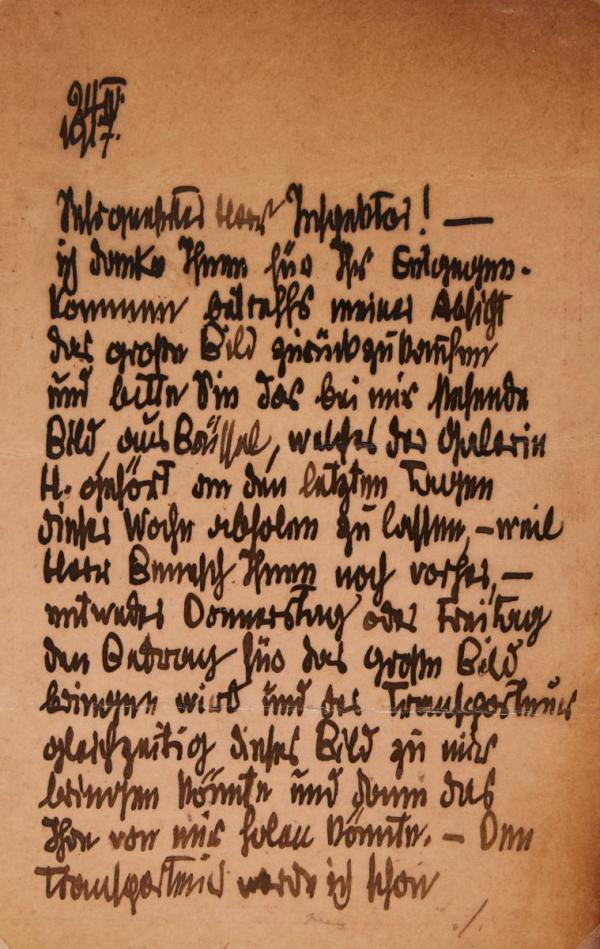 24 IV.
1917.
Sehrgeehrter Herr Inspektor! —
ich danke Ihnen für Ihr Entgegen-
kommen betreffs meiner Absicht
das große Bild zurückzukaufen
und bitte Sie das bei mir stehende
Bild, aus Brüssel, welches der Galerie
H. gehört an den letzten Tagen
dieser Woche abholen zu lassen, – weil
Herr Benesch Ihnen noch vorher, —
entweder Donnerstag oder Freitag
den Betrag für das große Bild
bringen wird und der Transporteur
gleichzeitig dieses Bild zu mir
bringen könnte und dann das
Ihre von mir holen könnte. – Den
Transporteur werde ich schon
./.